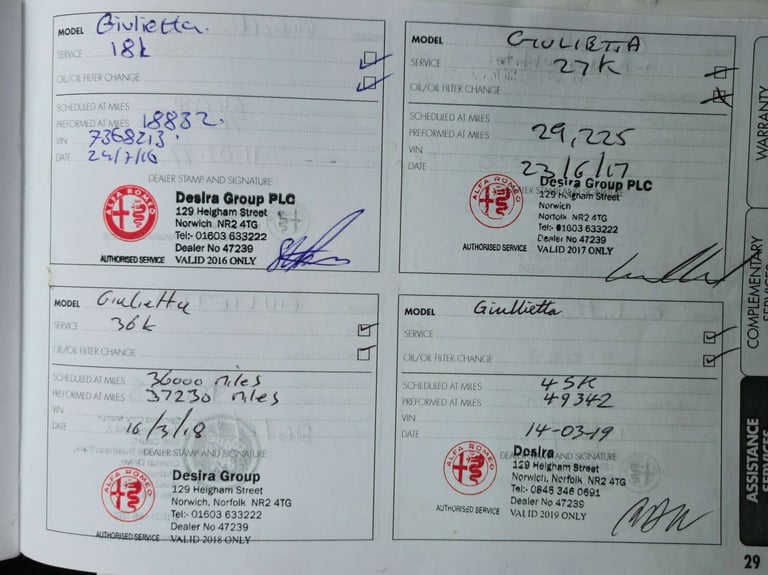 MODEL Giulietta.
SERVICE 18k
OIL/OIL FILTER CHANGE
SCHEDULED AT MILES
PREFORMED AT MILES 18832.
VIN 7368213.
DATE 24/7/16
DEALER STAMP AND SIGNATURE
ALFA ROMEO
Desira Group PLC
129 Heigham Street
Norwich NR2 4TG
Tel:- 01603 633222
Dealer No 47239
AUTHORISED SERVICE VALID 2016 ONLY
MODEL GIULIETTA
SERVICE 27K
OIL/OIL FILTER CHANGE
SCHEDULED AT MILES
PREFORMED AT MILES 29,225
VIN
DATE 23/6/17
ALFA ROMEO
Desira Group PLC
129 Heigham Street
Norwich
Norfolk NR2 4TG
Tel:- 01603 633222
Dealer No 47239
AUTHORISED SERVICE VALID 2017 ONLY
MODEL Giulietta
SERVICE 36k
OIL/OIL FILTER CHANGE
SCHEDULED AT MILES 36000 miles
PREFORMED AT MILES 37230 miles
VIN
DATE 16/3/18
DEALER STAMP AND SIGNATURE
ALFA ROMEO
Desira Group
129 Heigham Street
Norwich, Norfolk NR2 4TG
Tel:- 01603 633222
Dealer No 47239
AUTHORISED SERVICE VALID 2018 ONLY
MODEL Giullietta
SERVICE
OIL/OIL FILTER CHANGE
SCHEDULED AT MILES 45K
PREFORMED AT MILES 49342
VIN
DATE 14-03-19
DEALER STAMP AND SIGNATURE
ALFA ROMEO
Desira
129 Heigham Street
Norwich, Norfolk NR2 4TG
Tel:- 0845 346 0691
Dealer No 47239
AUTHORISED SERVICE VALID 2019 ONLY
WARRANTY
COMPLEMENTARY
SERVICES
ASSISTANCE
SERVICES
29